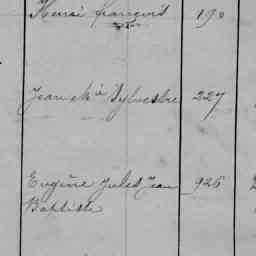 Henri françois 190
Jean M a Sylvestre 227
Eugène Jules Jean 926
Baptiste